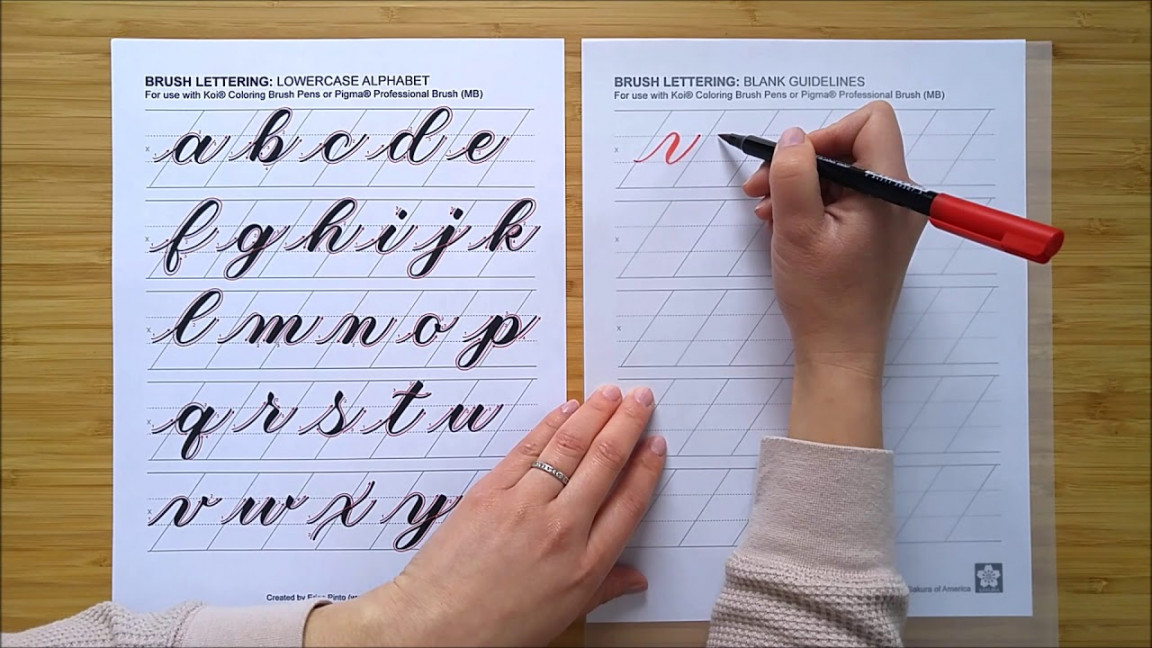 BRUSH LETTERING: LOWERCASE ALPHABET
For use with Koi® Coloring Brush Pens or Pigma® Professional Brush (MB)
x a b c d e
x f g h i j k
x l m n o p
x q r s t u
x v w x y
Created by
BRUSH LETTERING: BLANK GUIDELINES
For use with Koi® Coloring Brush Pens or Pigma® Professional Brush (MB)
x v
x
x
x
x
Sakura of America